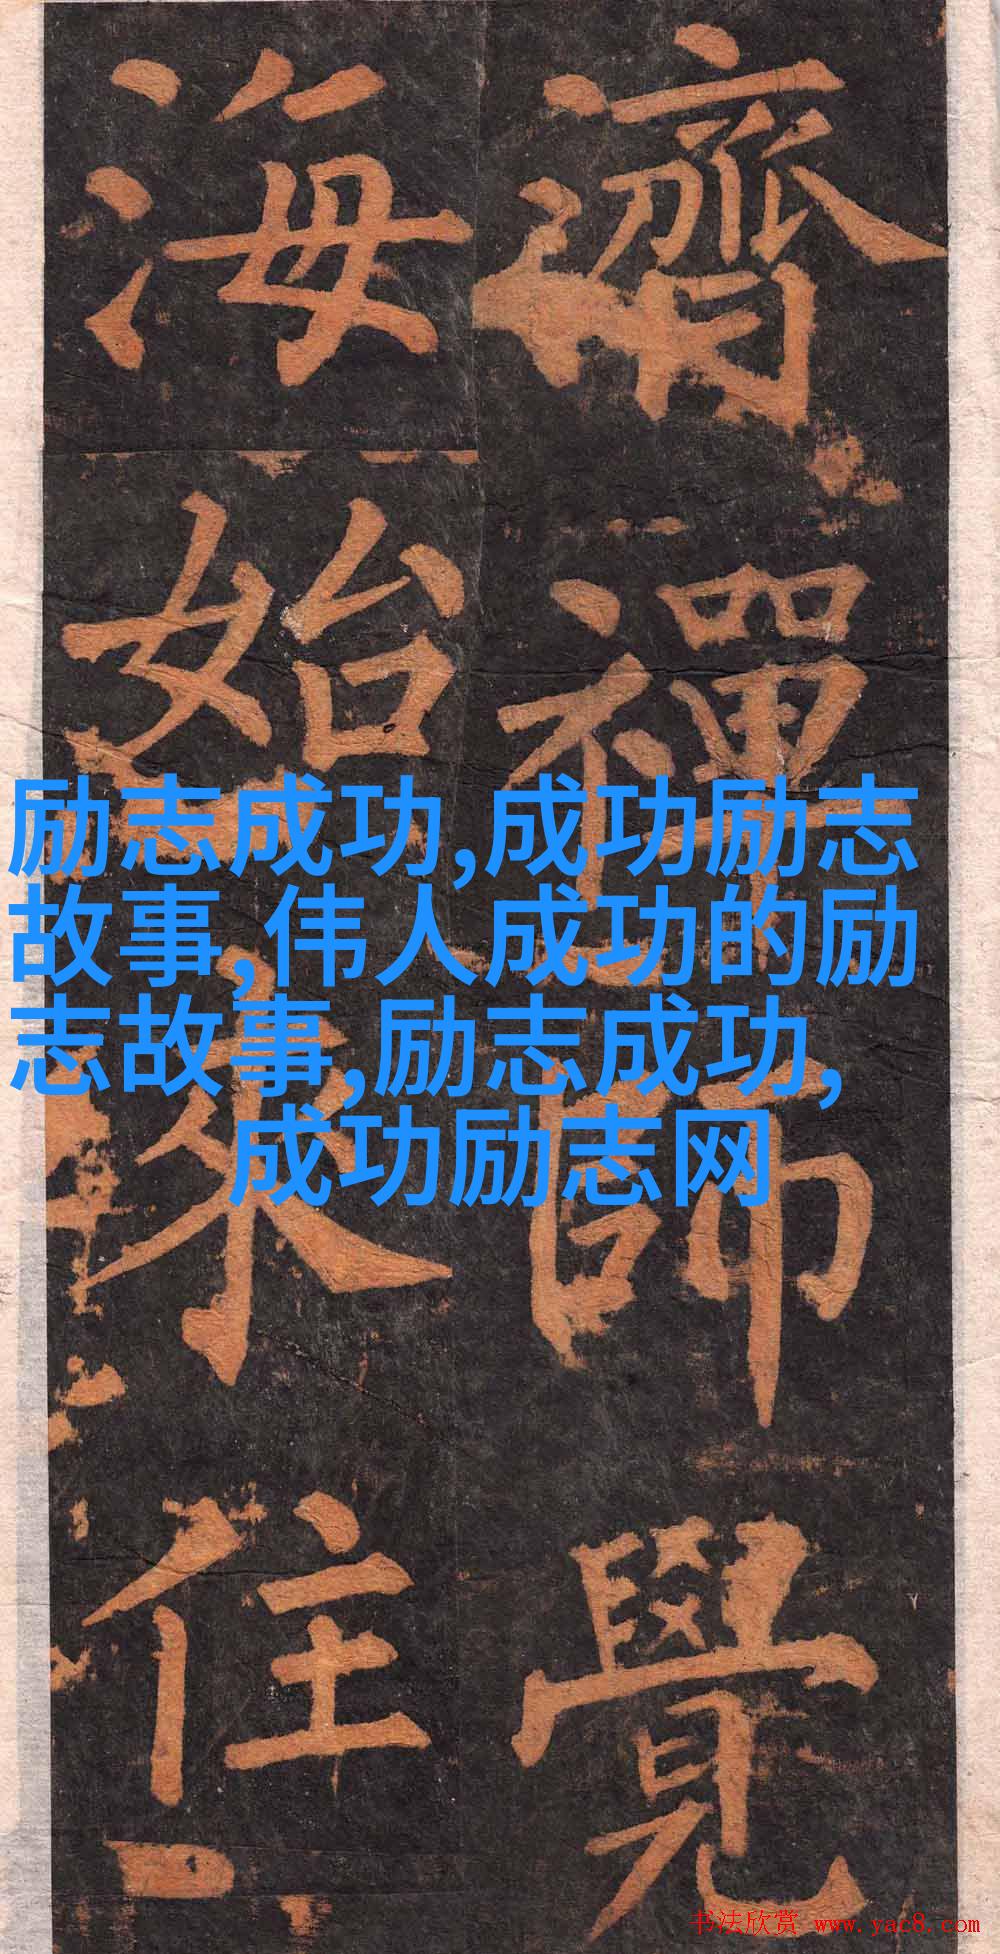 濟禪師覺
海始來住
励志成功,成功励志
故事,伟人成功的励
志故事,励志成功,
成功励志网
书法欣赏 www.yac8.com